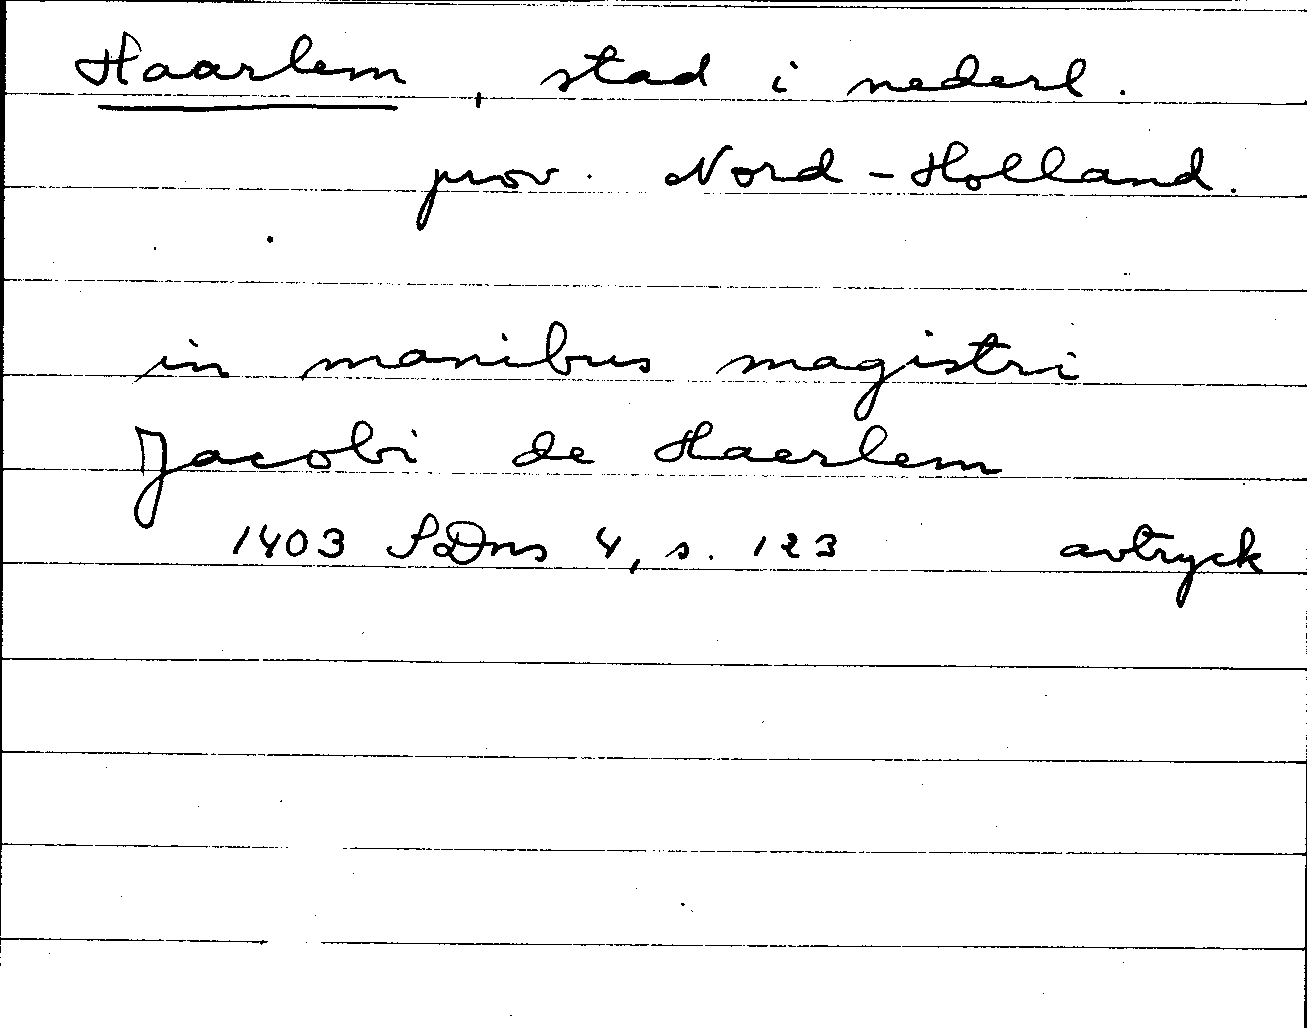 Haarlem, stad i nederl.
prov. Nord-Holland.
in manibus magistri
Jacobi de Haerlem
1403 SDns 4, s. 123 avtryck